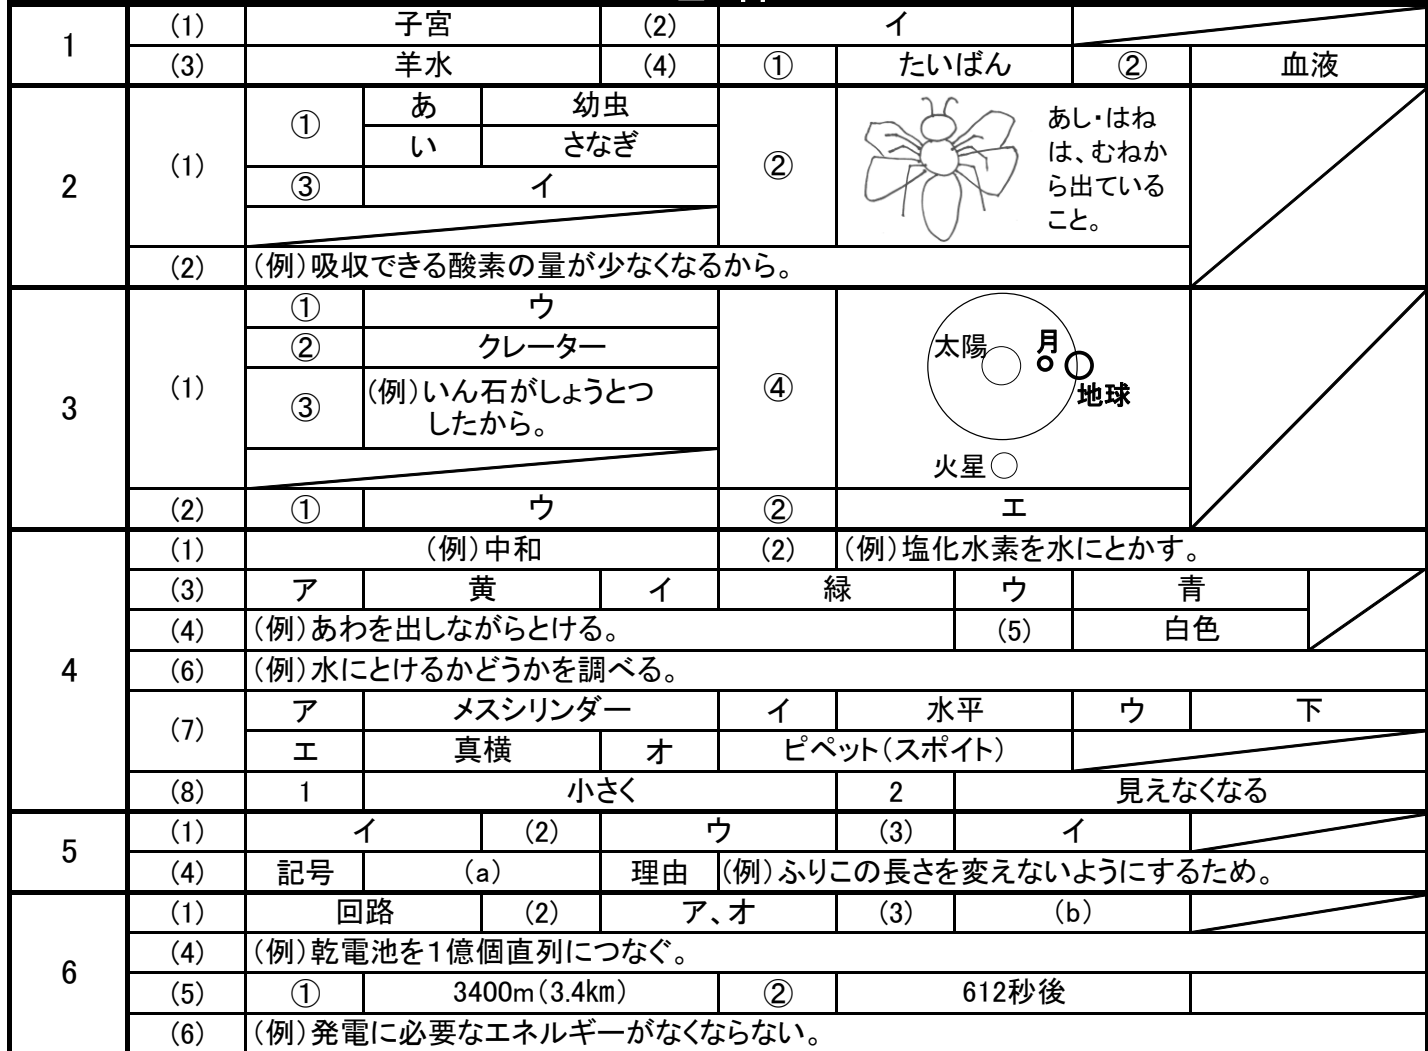 1
(1) 子宮 (2) イ
(3) 羊水 (4) ① たいばん ② 血液
2
(1) ① あ 幼虫
い さなぎ
③ イ
② あし・はね
は、むねか
ら出ている
こと。
(2) (例)吸収できる酸素の量が少なくなるから。
3
(1) ① ウ
② クレーター
③ (例)いん石がしょうとつ
したから。
④ 太陽 月
地球
火星
(2) ① ウ ② エ
4
(1) (例)中和 (2) (例)塩化水素を水にとかす。
(3) ア 黄 イ 緑 ウ 青
(4) (例)あわを出しながらとける。 (5) 白色
(6) (例)水にとけるかどうかを調べる。
(7) ア メスシリンダー イ 水平 ウ 下
エ 真横 オ ピペット(スポイト)
(8) 1 小さく 2 見えなくなる
5
(1) イ (2) ウ (3) イ
(4) 記号 (a) 理由 (例)ふりこの長さを変えないようにするため。
6
(1) 回路 (2) ア、オ (3) (b)
(4) (例)乾電池を1億個直列につなぐ。
(5) ① 3400m(3.4km) ② 612秒後
(6) (例)発電に必要なエネルギーがなくならない。